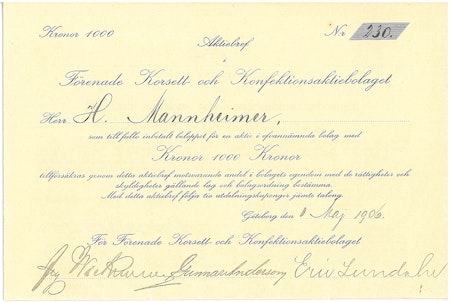 Kronor 1000 Nr 230.
Aktiebref
i
Förenade Korsett- och Konfektionsaktiebolaget
Herr H. Mannheimer,
som till fullo inbetalt beloppet för en aktie i ofvannämnda bolag med
Kronor 1000 Kronor
tillförsäkras genom detta aktiebref motsvarande andel i bolagets egendom med de rättigheter och
skyldigheter gällande lag och bolagsordning bestämma.
Med detta aktiebref följa tio utdelningskuponger jämte talong.
Göteborg den 1 Maj 1906.
För Förenade Korsett- och Konfektionsaktiebolaget
Gunnar Anderson Eric Lundahl